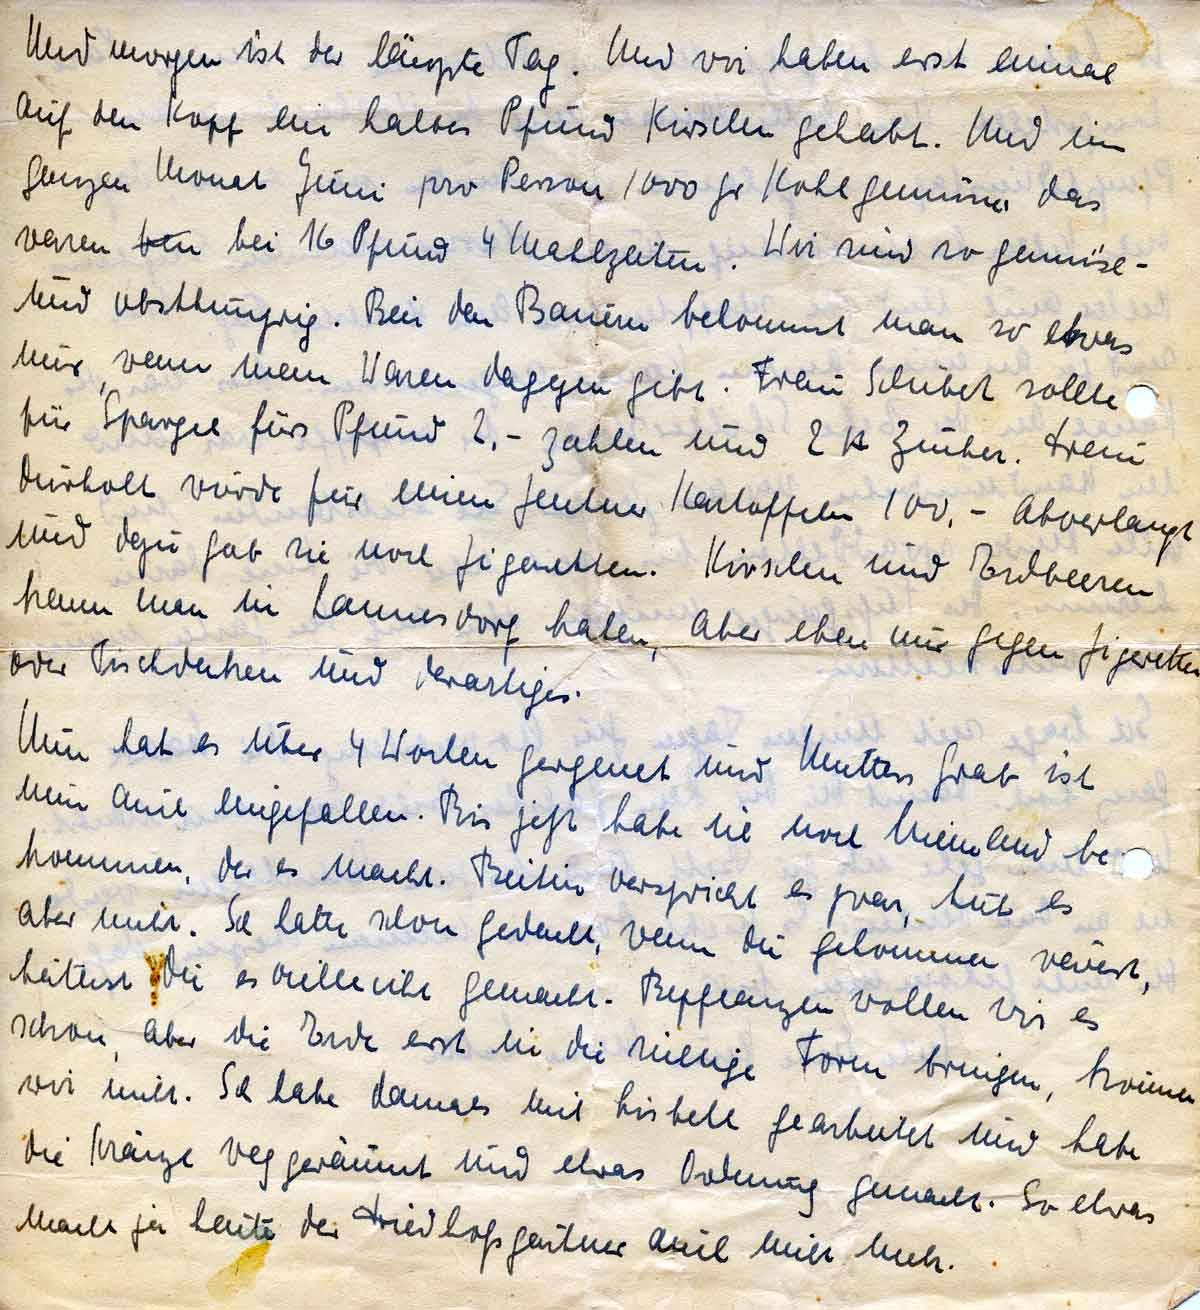 Und morgen ist der längste Tag. Und wir haben erst einmal
auf den Kopf ein halbes Pfund Kirschen gehabt. Und im
ganzen Monat Juni pro Person 1000 gr Kohlgemüse, das
waren bei 16 Pfund 4 Mahlzeiten. Wir sind so gemüse-
und obsthungrig. Bei den Bauern bekommt man so etwas
nur, wenn man Waren dagegen gibt. Frau Schubert sollte
für Spargel fürs Pfund 2,- zahlen und 2 Zucker. Frau
Dürholt würde für einen Zentner Kartoffeln 100,- abverlangt
und dazu gab sie noch Zigaretten. Kirschen und Erdbeeren
kann man in Lannesdorf haben, aber eben nur gegen Zigaretten
oder Tischdecken und derartiges.
Nun hat es über 4 Wochen geregnet und Mutters Grab ist
nun auch eingefallen. Bis jetzt habe ich noch niemand be-
kommen, der es macht. verspricht es zwar, tut es
aber nicht. Ich hatte schon gedacht, wenn du gekommen wärest,
hättest Du es vielleicht gemacht. Bepflanzen wollen wir es
schon, aber die Erde erst in die richtige Form bringen, können
wir nicht. Ich habe damals mit Lisbeth gearbeitet und habe
die Kränze weggeräumt und etwas Ordnung gemacht. So etwas
macht ja heute der Friedhofsgärtner auch nicht mehr.